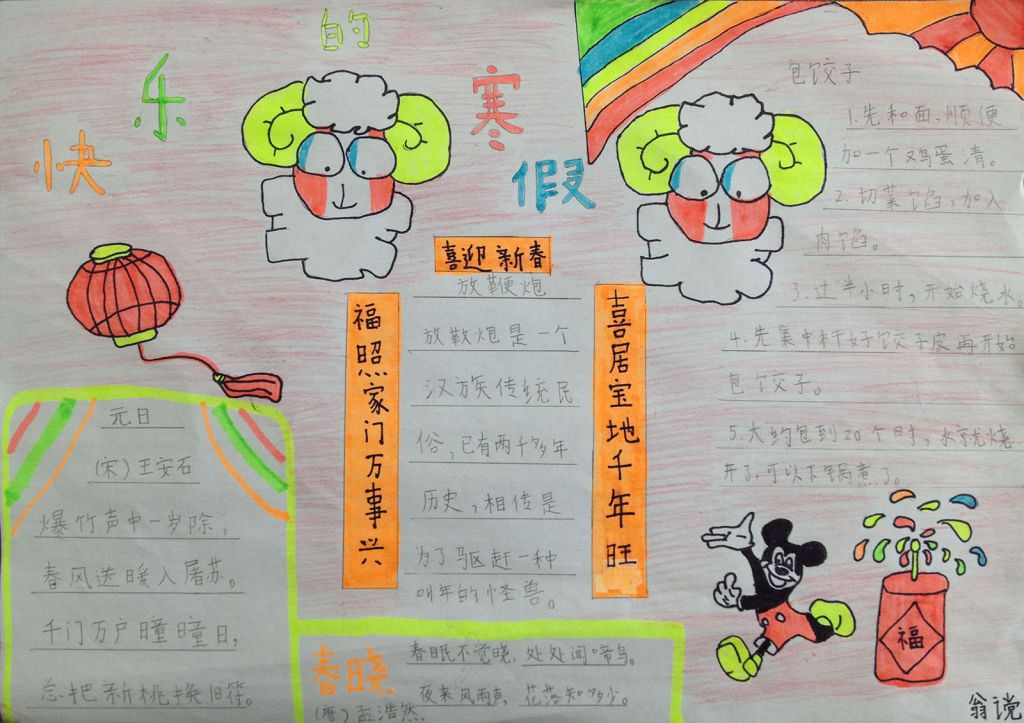 快乐的寒假
喜迎新春
福照家门万事兴
喜居宝地千年旺
放鞭炮
放鞭炮是一个
汉族传统民
俗，已有两千多年
历史，相传是
为了驱赶一种
叫年的怪兽。
包饺子
1.先和面，顺便
加一个鸡蛋清。
2.切菜馅，加入
肉馅。
3.过半小时，开始烧水。
4.先集中杆好饺子皮再开始
包饺子。
5.大约包到20个时，水就烧
开了，可以下锅煮了。
元日
(宋)王安石
爆竹声中一岁除，
春风送暖入屠苏。
千门万户曈曈日，
总把新桃换旧符。
春晓
(唐)孟浩然
春眠不觉晓，处处闻啼鸟。
夜来风雨声，花落知多少。
福
翁谠